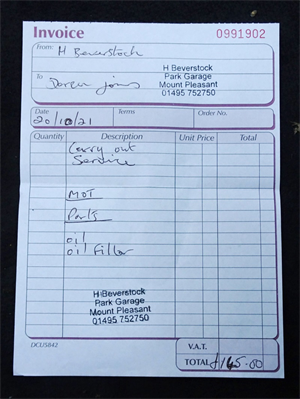 Invoice 0991902
From: H Beverstock
H Beverstock
Park Garage
Mount Pleasant
01495 752750
To Darren Jones
Date Terms Order No.
20/10/21
Quantity Description Unit Price Total
Carry out
Service
MOT
Parts
oil
oil Filter
H Beverstock
Park Garage
Mount Pleasant
01495 752750
DCUS842
V.A.T.
TOTAL £165-00